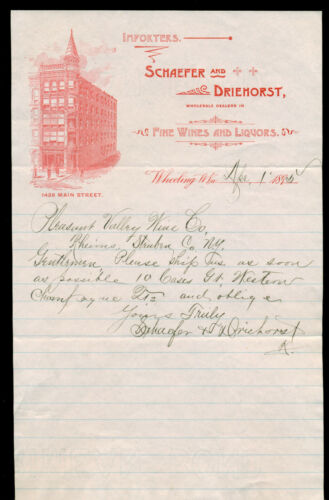 IMPORTERS.
SCHAEFER AND
DRIEHORST,
WHOLESALE DEALERS IN
FINE WINES AND LIQUORS.
1428 MAIN STREET.
Wheeling W.Va. Apr 1st 1895
Pleasant Valley Wine Co,
Rheims, Steuben Co, N.Y.
Gentlemen Please Ship us as soon
as possible 10 Cases Gt. Western
and oblige
Yours Truly
Schaefer & Driehorst